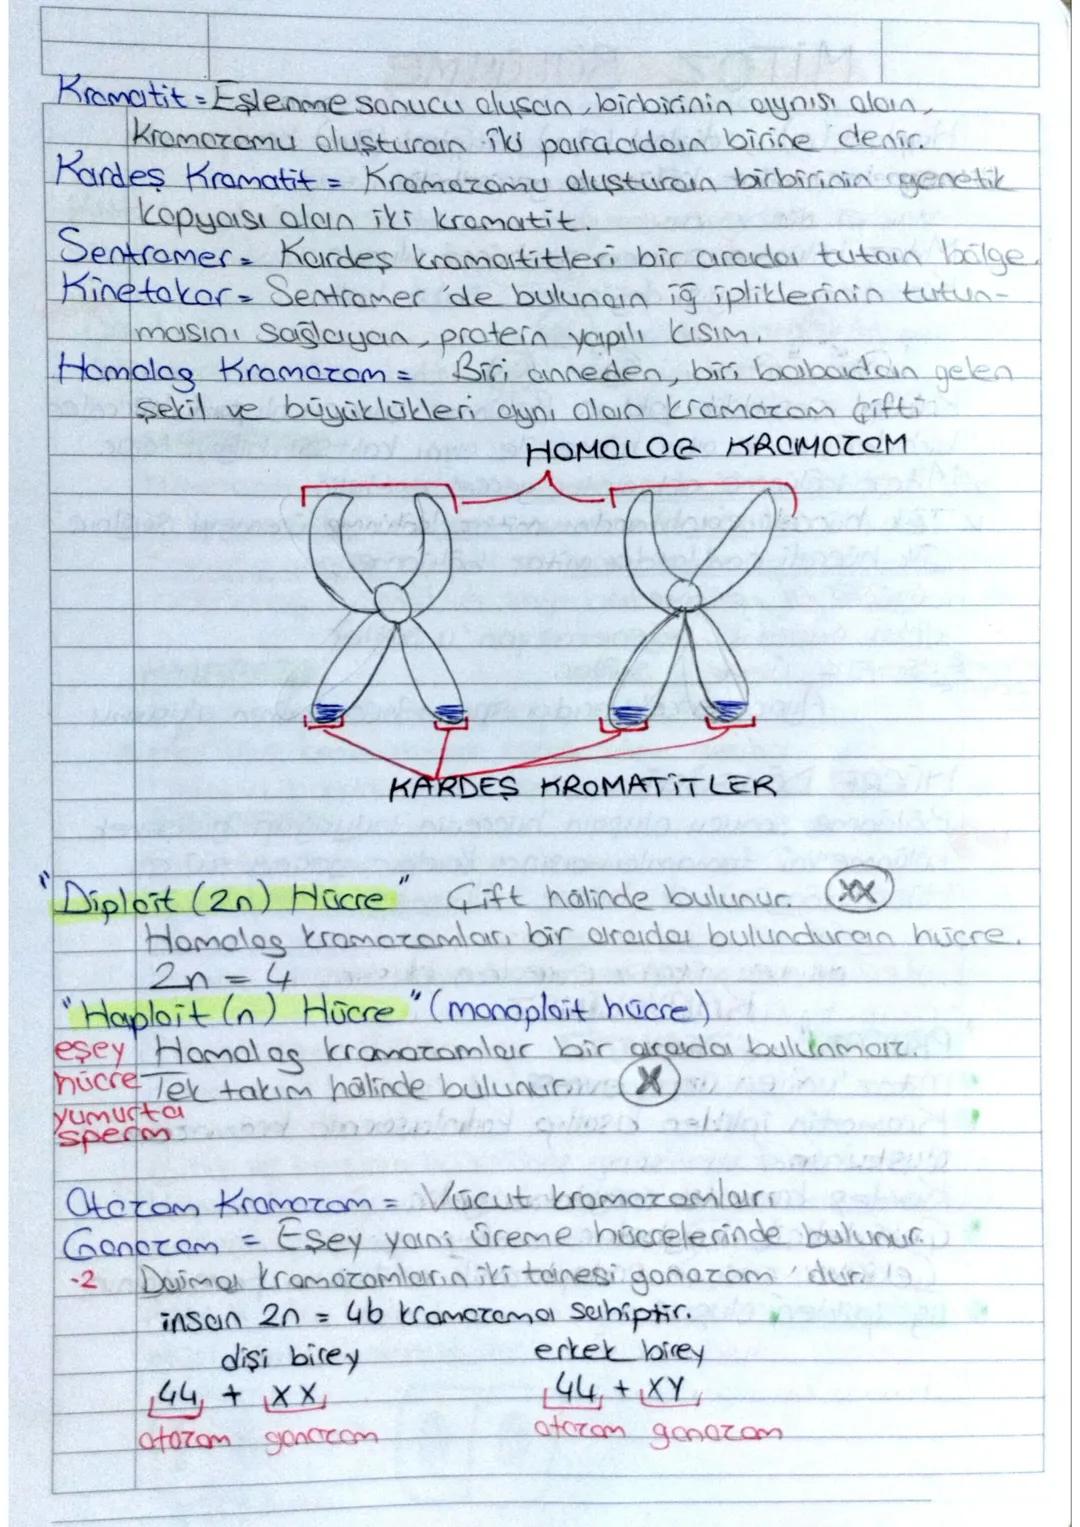 Kromatit = Eşlenme sonucu oluşan, birbirinin aynısı olan,
Kromozomu oluşturan iki parçadan birine denir.
Kardeş Kromatit = Kromozomu oluşturan birbirinin genetik
kopyası olan iki kromatit.
Sentromer = Kardeş kromatitleri bir arada tutan bölge.
Kinetokor = Sentromer'de bulunan iğ ipliklerinin tutun-
masını sağlayan, protein yapılı kısım.
Homolog Kromozom = Biri anneden, biri babadan gelen
şekil ve büyüklükleri aynı olan kromozom çifti
HOMOLOG KROMOZOM
KARDEŞ KROMATİTLER
"Diploit (2n) Hücre" Çift hâlinde bulunur. XX
Homolog kromozomları bir arada bulunduran hücre.
2n = 4
"Haploit (n) Hücre" (monoploit hücre)
eşey Homolog kromozomlar bir arada bulunmaz.
hücre Tek takım hâlinde bulunur. X
yumurta
sperm
Otozom Kromozom = Vücut kromozomları
Gonozom = Eşey yani üreme hücrelerinde bulunur.
-2 Daima kromozomların iki tanesi gonozom'dur.
insan 2n = 46 kromozoma sahiptir.
dişi birey erkek birey
44 + XX 44 + XY
otozom gonozom otozom gonozom